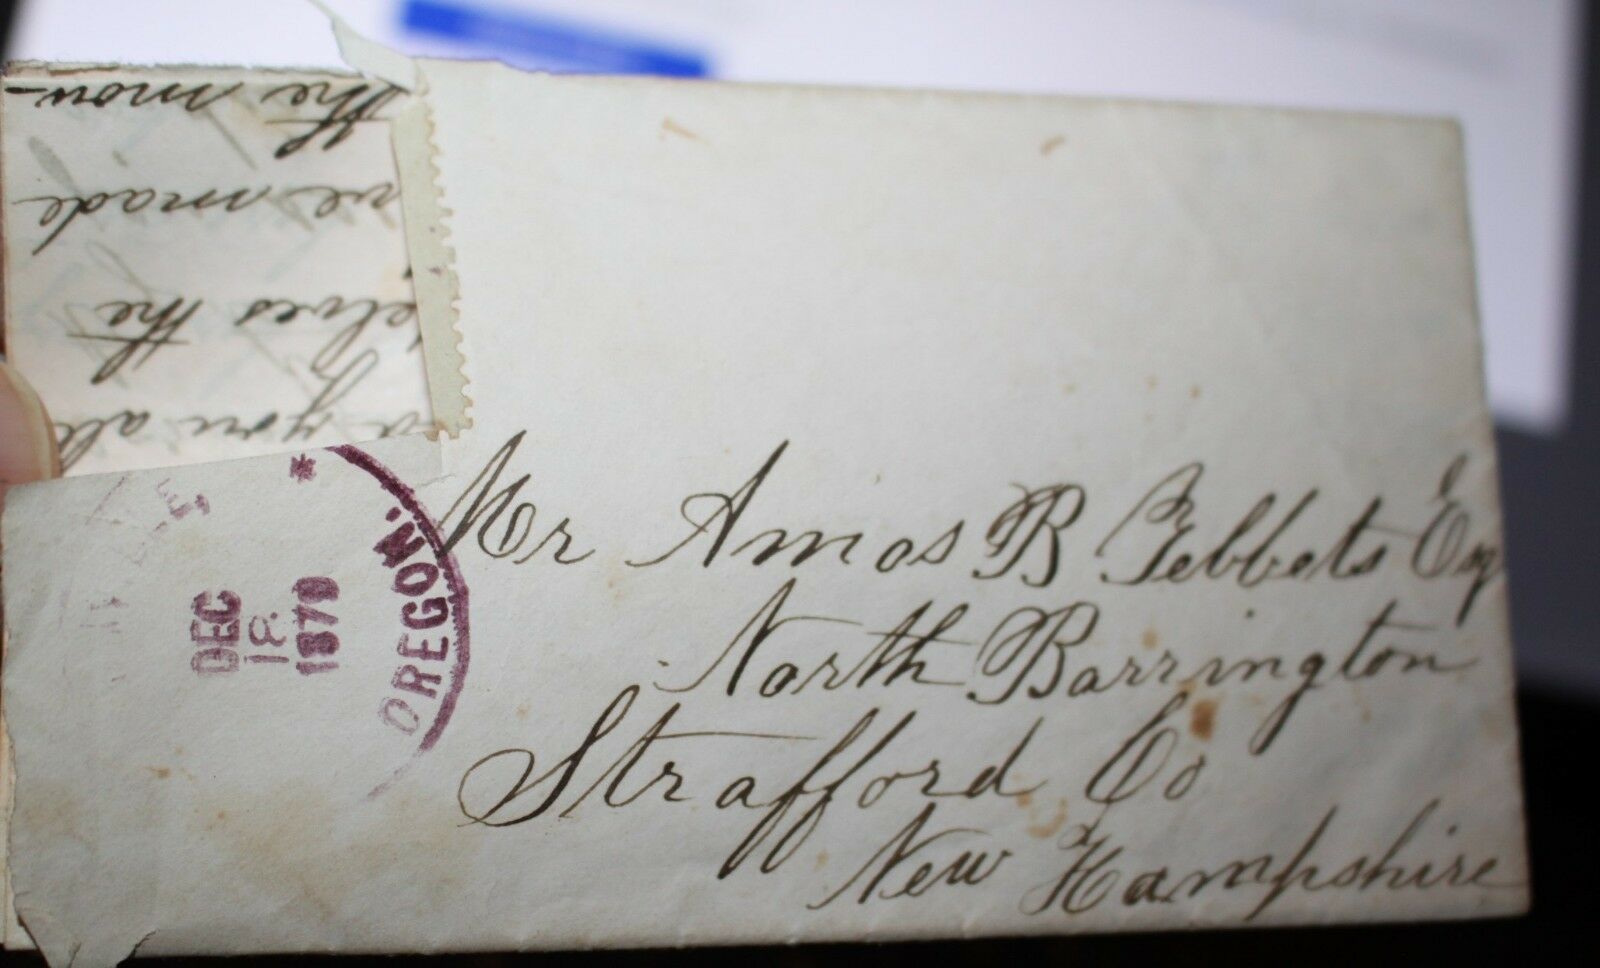 the snow-
ve made
elves the
you all
OREGON.
DEC
18
1879
Mr Amos B Tebbets Esq
North Barrington
Strafford Co
New Hampshire